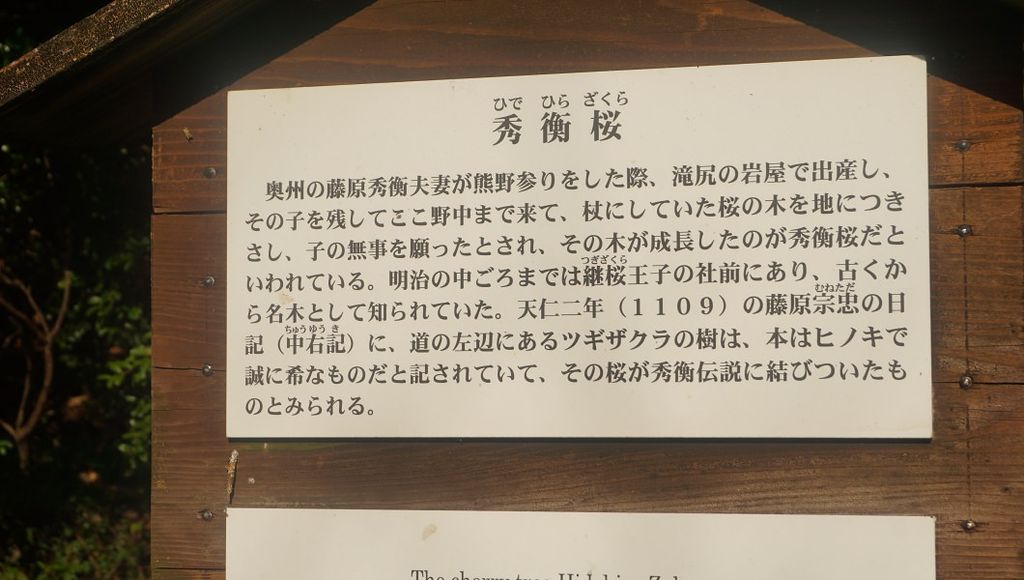 ひで ひら ざくら
秀衡桜
奥州の藤原秀衡夫妻が熊野参りをした際、滝尻の岩屋で出産し、
その子を残してここ野中まで来て、杖にしていた桜の木を地につき
さし、子の無事を願ったとされ、その木が成長したのが秀衡桜だと
つぎざくら
いわれている。明治の中ごろまでは継桜王子の社前にあり、古くか
むねただ
ら名木として知られていた。天仁二年（１１０９）の藤原宗忠の日
ちゅうゆうき
記（中右記）に、道の左辺にあるツギザクラの樹は、本はヒノキで
誠に希なものだと記されていて、その桜が秀衡伝説に結びついたも
のとみられる。
The cherry tree